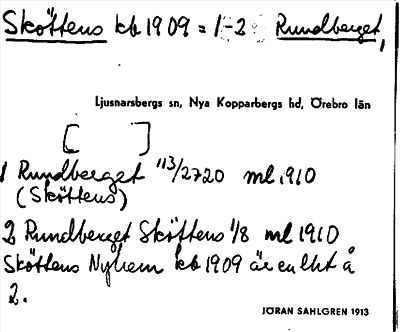 Sköttens kb 1909 = 1-2 Rundberget,
Ljusnarsbergs sn, Nya Kopparbergs hd, Örebro län
[ ]
1 Rundberget 113/2720 ml 1910
(Sköttens)
2 Rundberget Sköttens 1/8 ml 1910
Sköttens Nyhem kb 1909 är en lht å
2.
JÖRAN SAHLGREN 1913